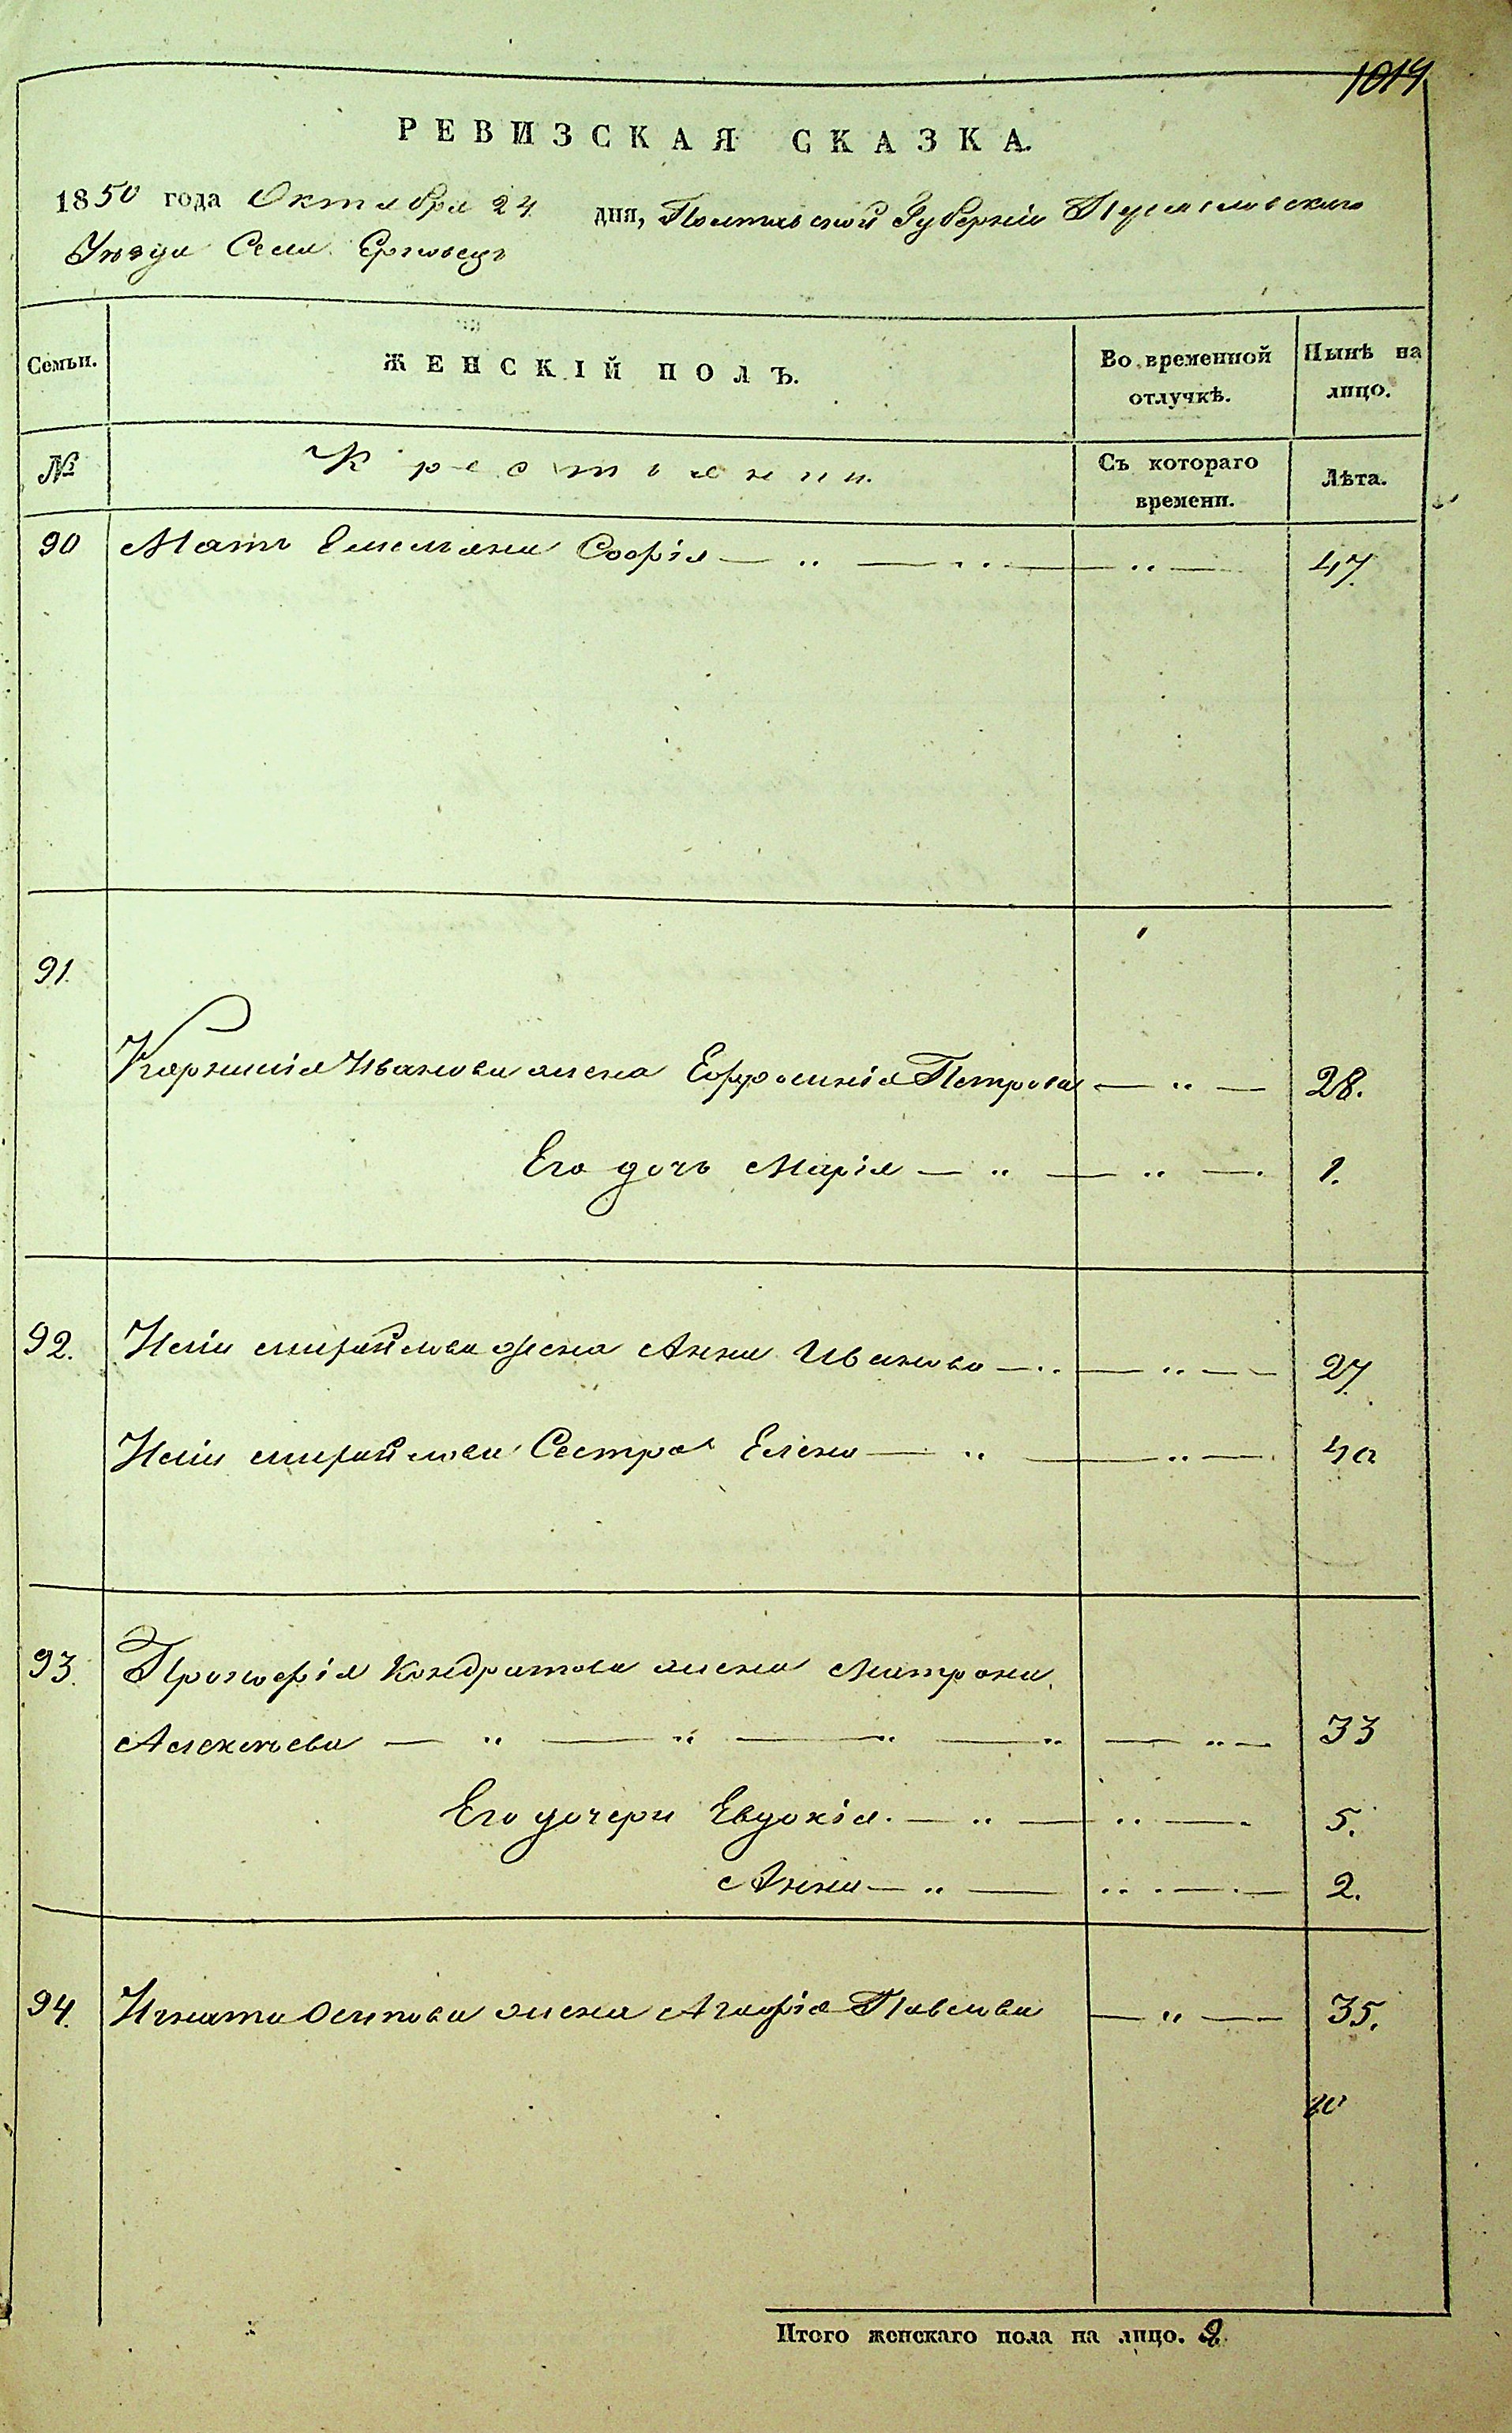 1014
РЕВИЗСКАЯ СКАЗКА.
1850 года Октября 24 дня, Полтавской Губерніи
Уѣзда Села
Семьи. ЖЕНСКІЙ ПОЛЪ. Во временной отлучкѣ. Нынѣ на лицо.
№ Крестьянки. Съ котораго времени. Лѣта.
90 Мать Емельяна Софія — " — " — " — 47.
91.
Корнилія Иванова жена Ефросинія Петрова — " — 28.
Его дочь Марія — " — " — 1.
92. Иліи Михайлова жена Анна Иванова — " — " — 27.
Иліи Михайлова Сестра Елена — " — " — 40
93. Прокофія Кондратова жена Матрона
Алексѣева — " — " — " — " — " — 33
Его дочери Евдокія. — " — " — 5.
Анна — " — " — 2.
94. Игната Осипова жена Агафія Павлова — " — 35.
Итого женскаго пола на лицо. 9.